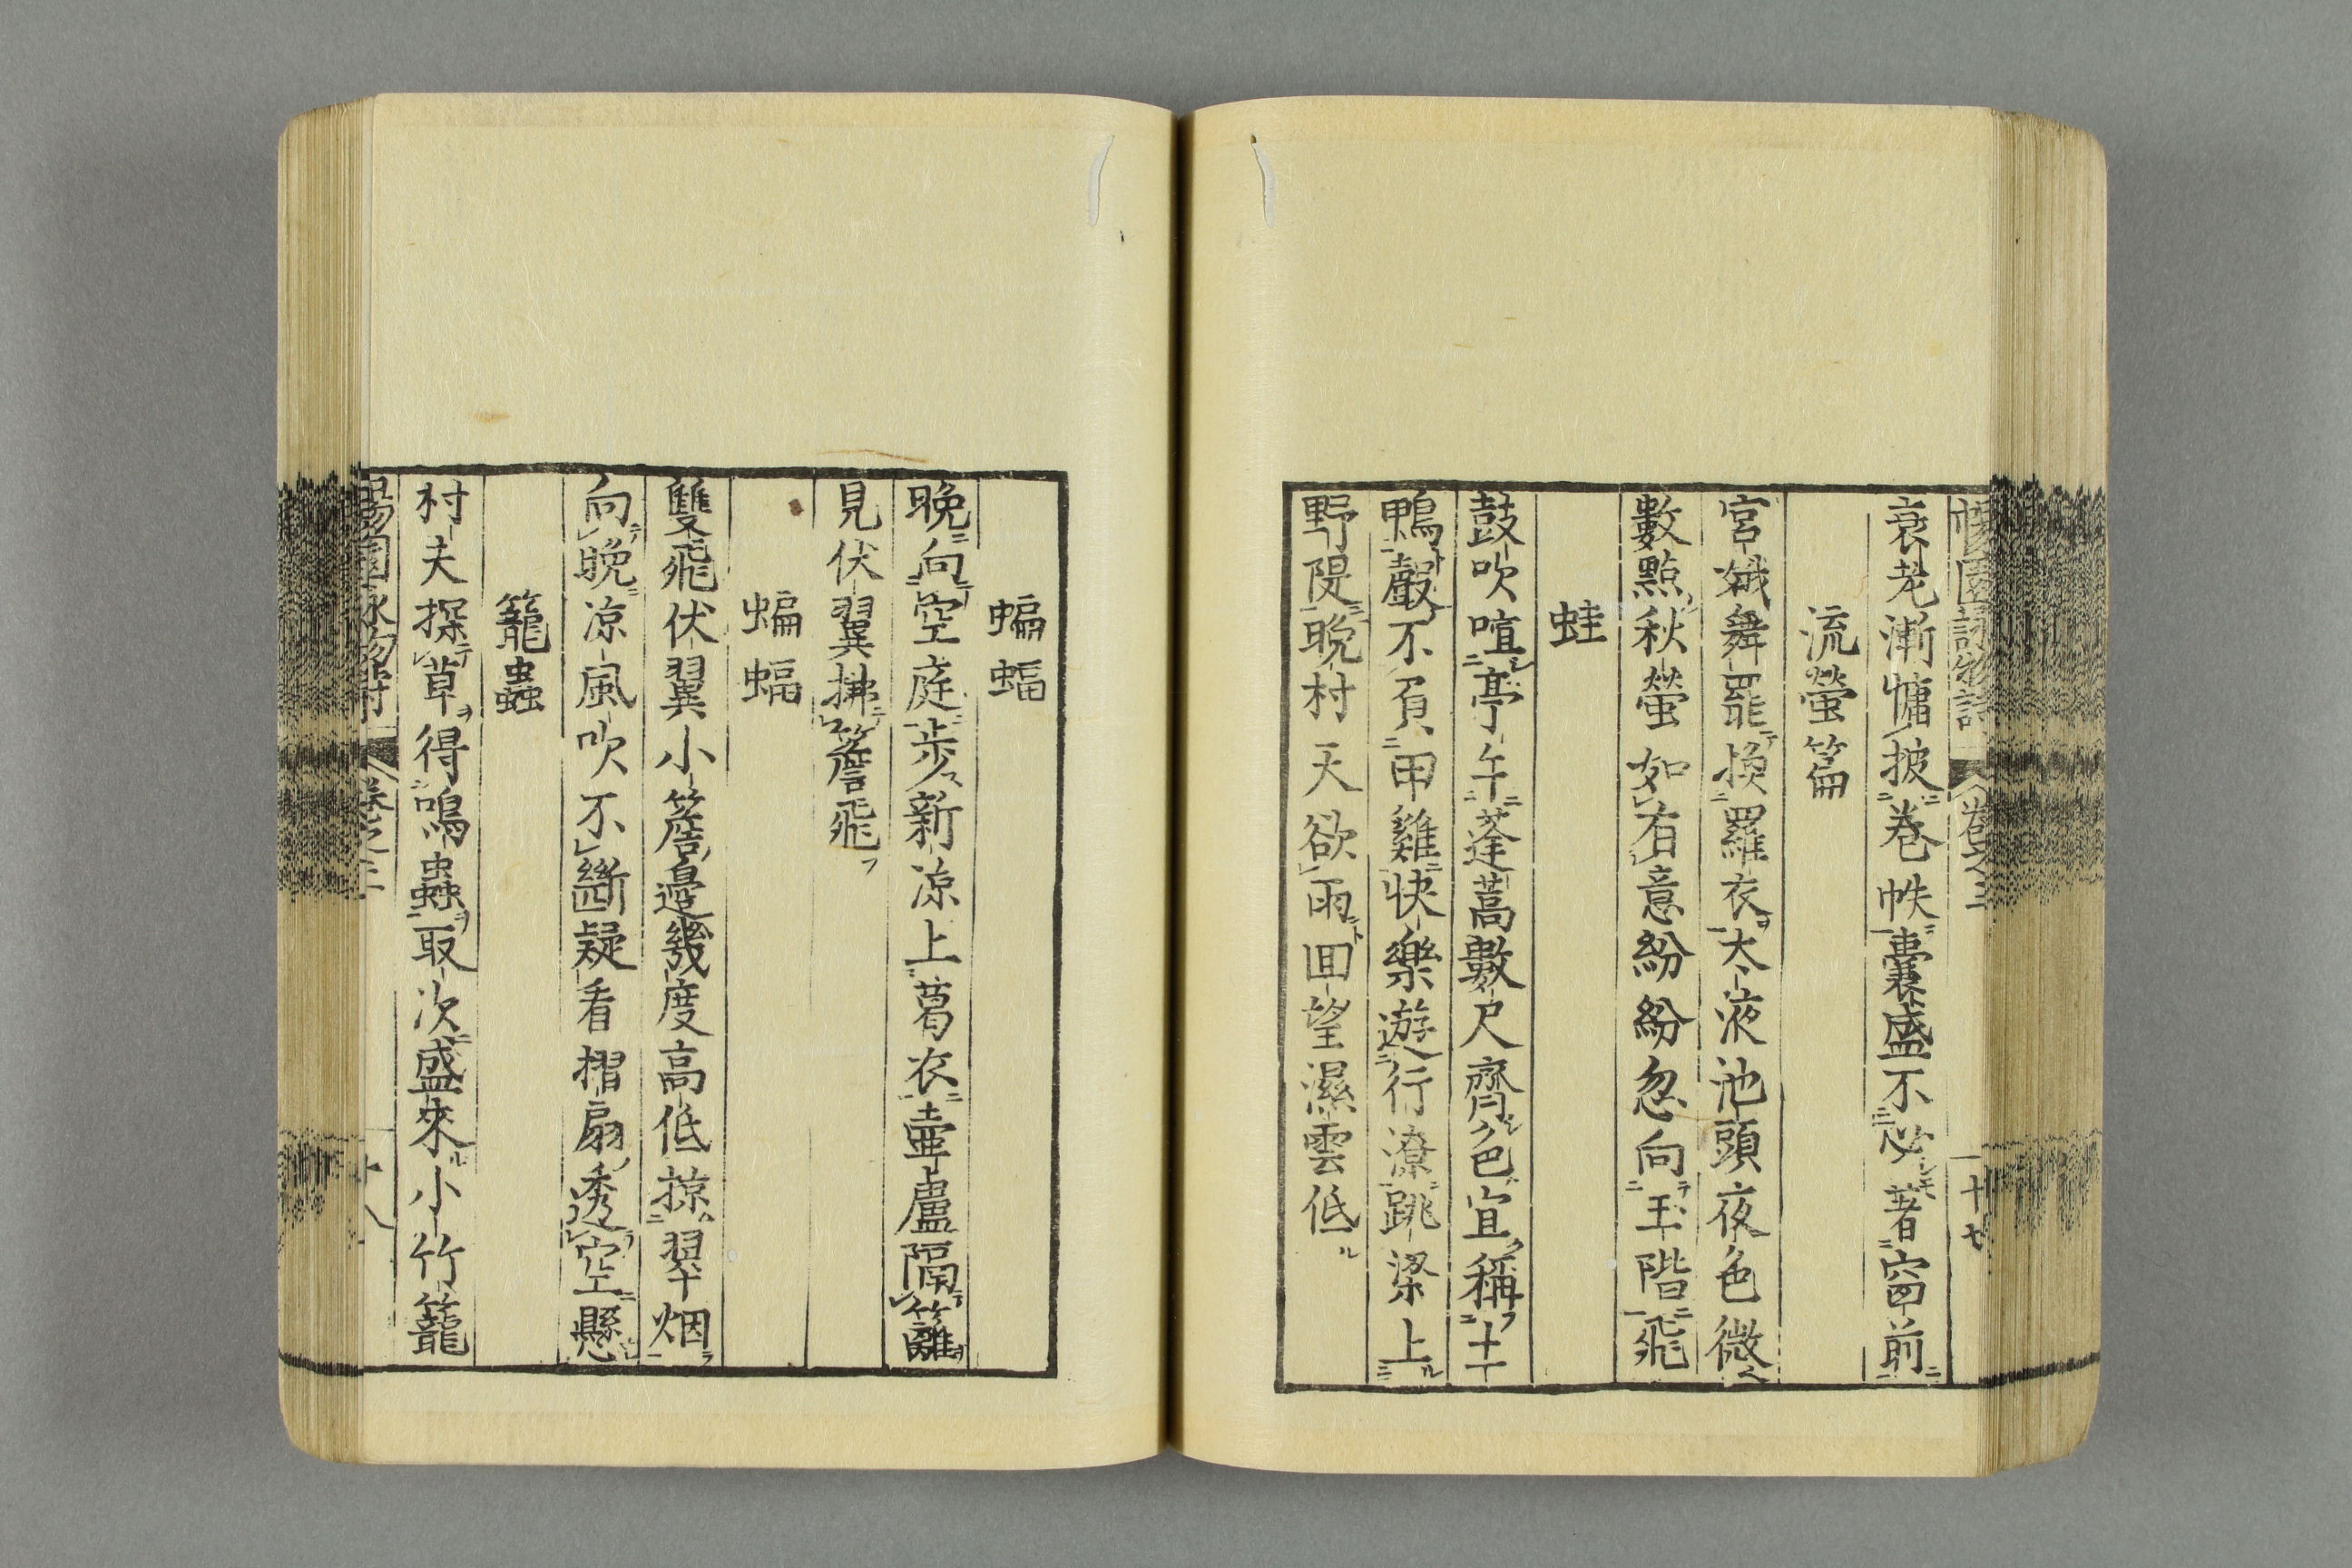 衰老漸慵披巻帙囊盛不必著窗前
流螢篇
宮娥舞罷換羅衣太液池頭夜色微
數點秋螢如有意紛紛忽向玉階飛
蛙
鼓吹喧亭午蓬蒿數尺齊色宜稱土
鴨聲不負田雞快樂遊行潦跳梁上
野隄晩村天欲雨回望濕雲低
蝙蝠
晩向空庭步新涼上葛衣壷盧隔籬
見伏翼拂簷飛
蝙蝠
雙飛伏翼小簷邊幾度高低掠翠烟
向晩涼風吹不斷疑看摺扇透空懸
籠蟲
村夫探草得鳴蟲取次盛來小竹籠